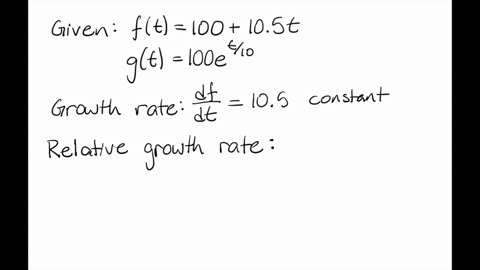 Given: f(t) = 100 + 10.5t
g(t) = 100e^{t/10}
Growth rate: df/dt = 10.5 constant
Relative growth rate: